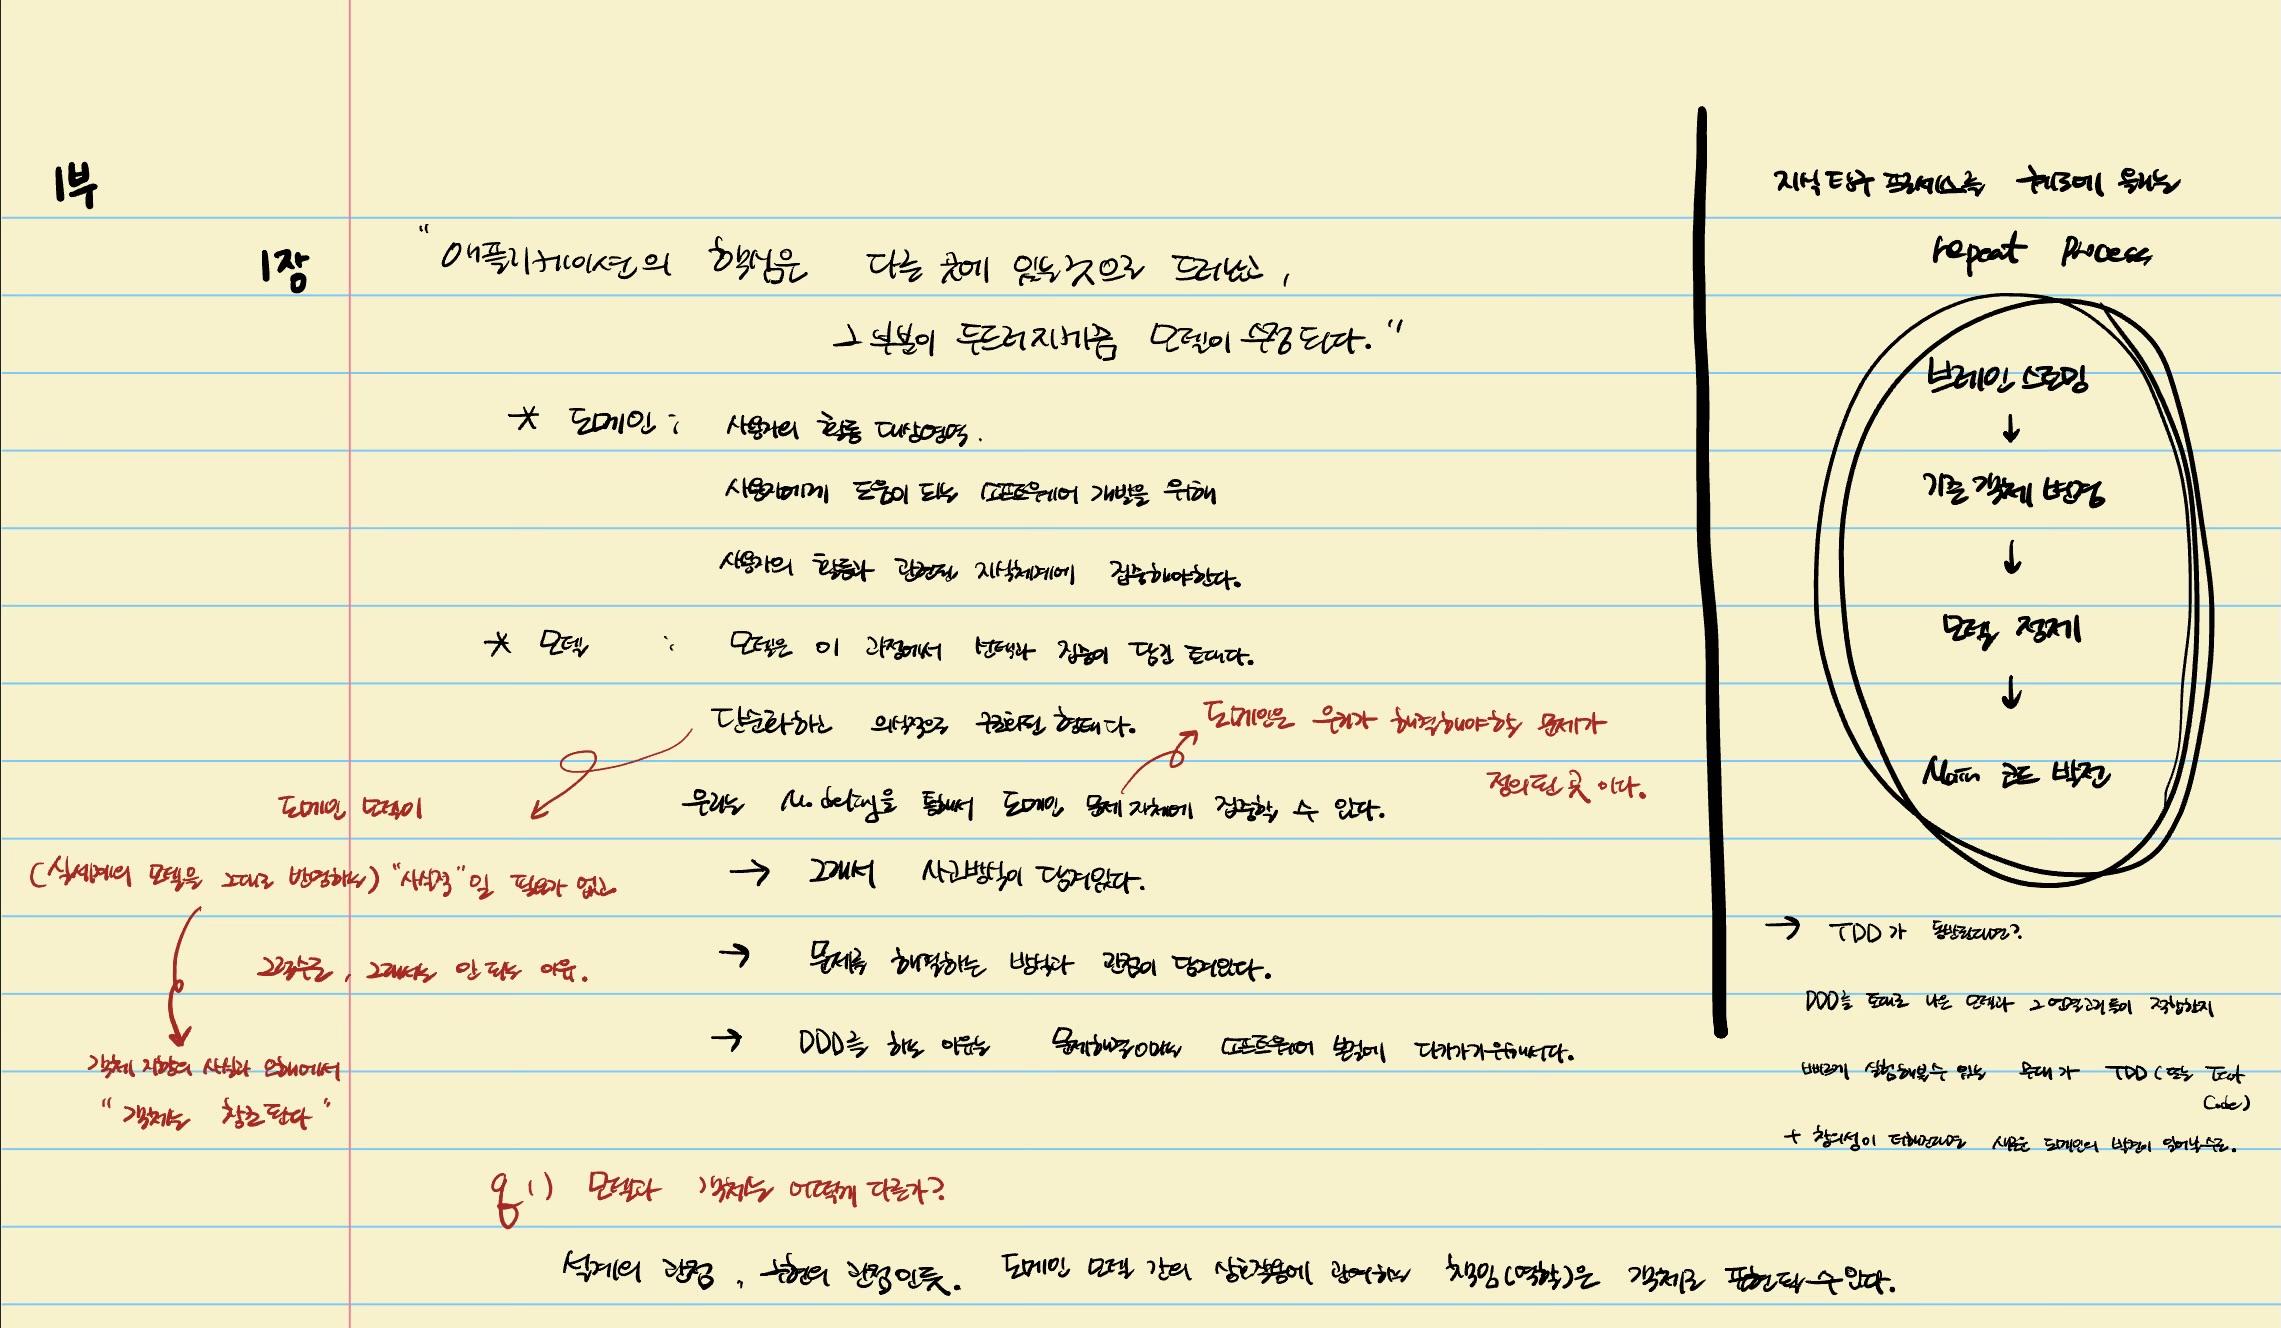 1부
1장
"애플리케이션의 핵심은 다른 곳에 있는 것으로 드러났고,
그 부분이 두드러지게끔 모델이 수정된다."
* 도메인 : 사용자의 활동 대상영역.
사용자에게 도움이 되는 소프트웨어 개발을 위해
사용자의 활동과 관련된 지식체계에 집중해야한다.
* 모델 : 모델은 이 과정에서 선택과 집중이 담긴 토대다.
단순화하고 의식적으로 구조화된 형태다.
도메인은 우리가 해결해야할 문제가
정의된 곳 이다.
우리는 Modeling을 통해서 도메인 문제 자체에 집중할 수 있다.
→ 그래서 사고방식이 담겨있다.
→ 문제를 해결하는 방식과 관점이 담겨있다.
→ DDD를 하는 이유는 문제해결이라는 소프트웨어 본질에 다가가기위해서다.
도메인 모델이
(실세계의 모델을 그대로 반영하는) "사실적"일 필요가 없고
그럴수록, 그래서는 안 되는 이유.
객체 지향의 사실과 오해에서
"객체는 창조된다"
q1) 모델과 객체는 어떻게 다른가?
설계의 관점, 구현의 관점인듯. 도메인 모델 간의 상호작용에 관여하는 책임(역할)은 객체로 표현될 수 있다.
지식탐구 프로세스를 궤도에 올리는
repeat process
브레인 스토밍
↓
기존 객체 변경
↓
모델 정제
↓
Main 코드 발전
→ TDD가 동반된다면?
DDD를 토대로 나온 모델과 그 연결고리들이 적합한지
빠르게 실험해볼수 있는 무대가 TDD (또는 Test
Code)
+ 창의성이 더해진다면 새로운 도메인의 발견이 일어날수도.